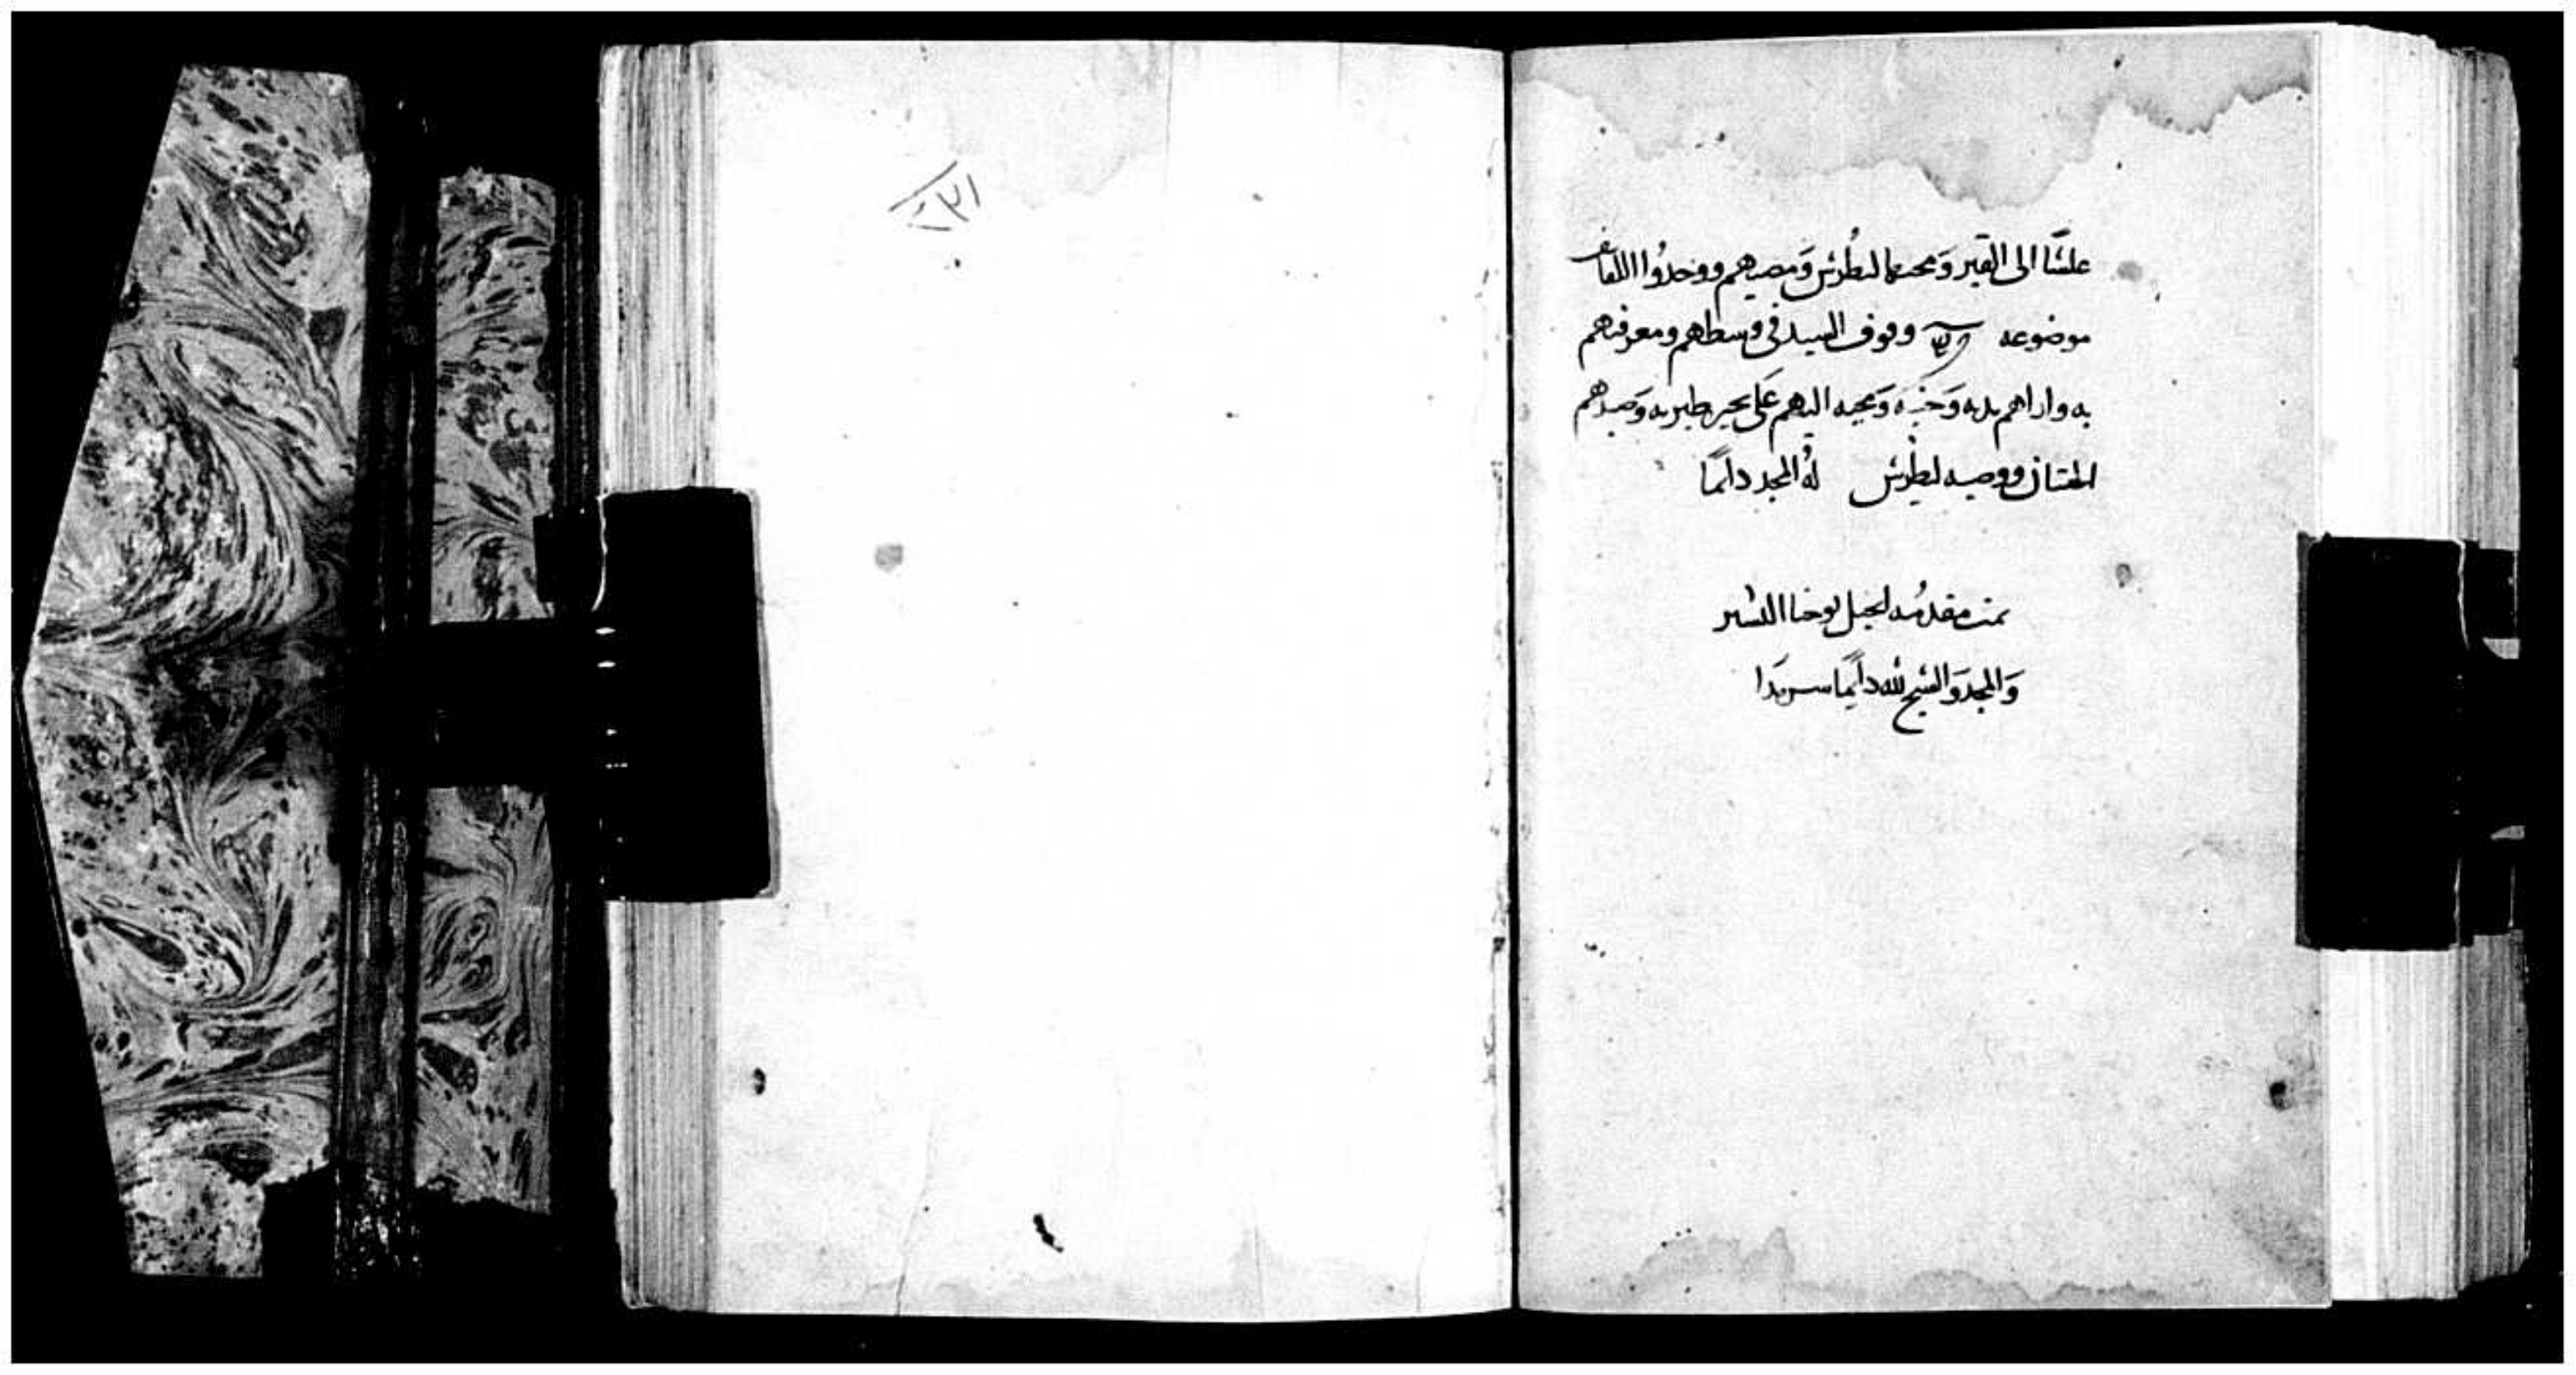 علسًا الى القبر ومحيها لبطرس ومضيهم ووجدوا اللفايف
موضوعه وقوف السيد فى وسطهم ومعرفتهم
به واراهم يديه وجنبه ومجيه اليهم على بحر طبريه وصيدهم
الحيتان ووصيه لبطرس له المجد دائمًا
تمت مقدمه انجيل يوحنا البشير
والمجد والتسبيح لله دايمًا سرمدا